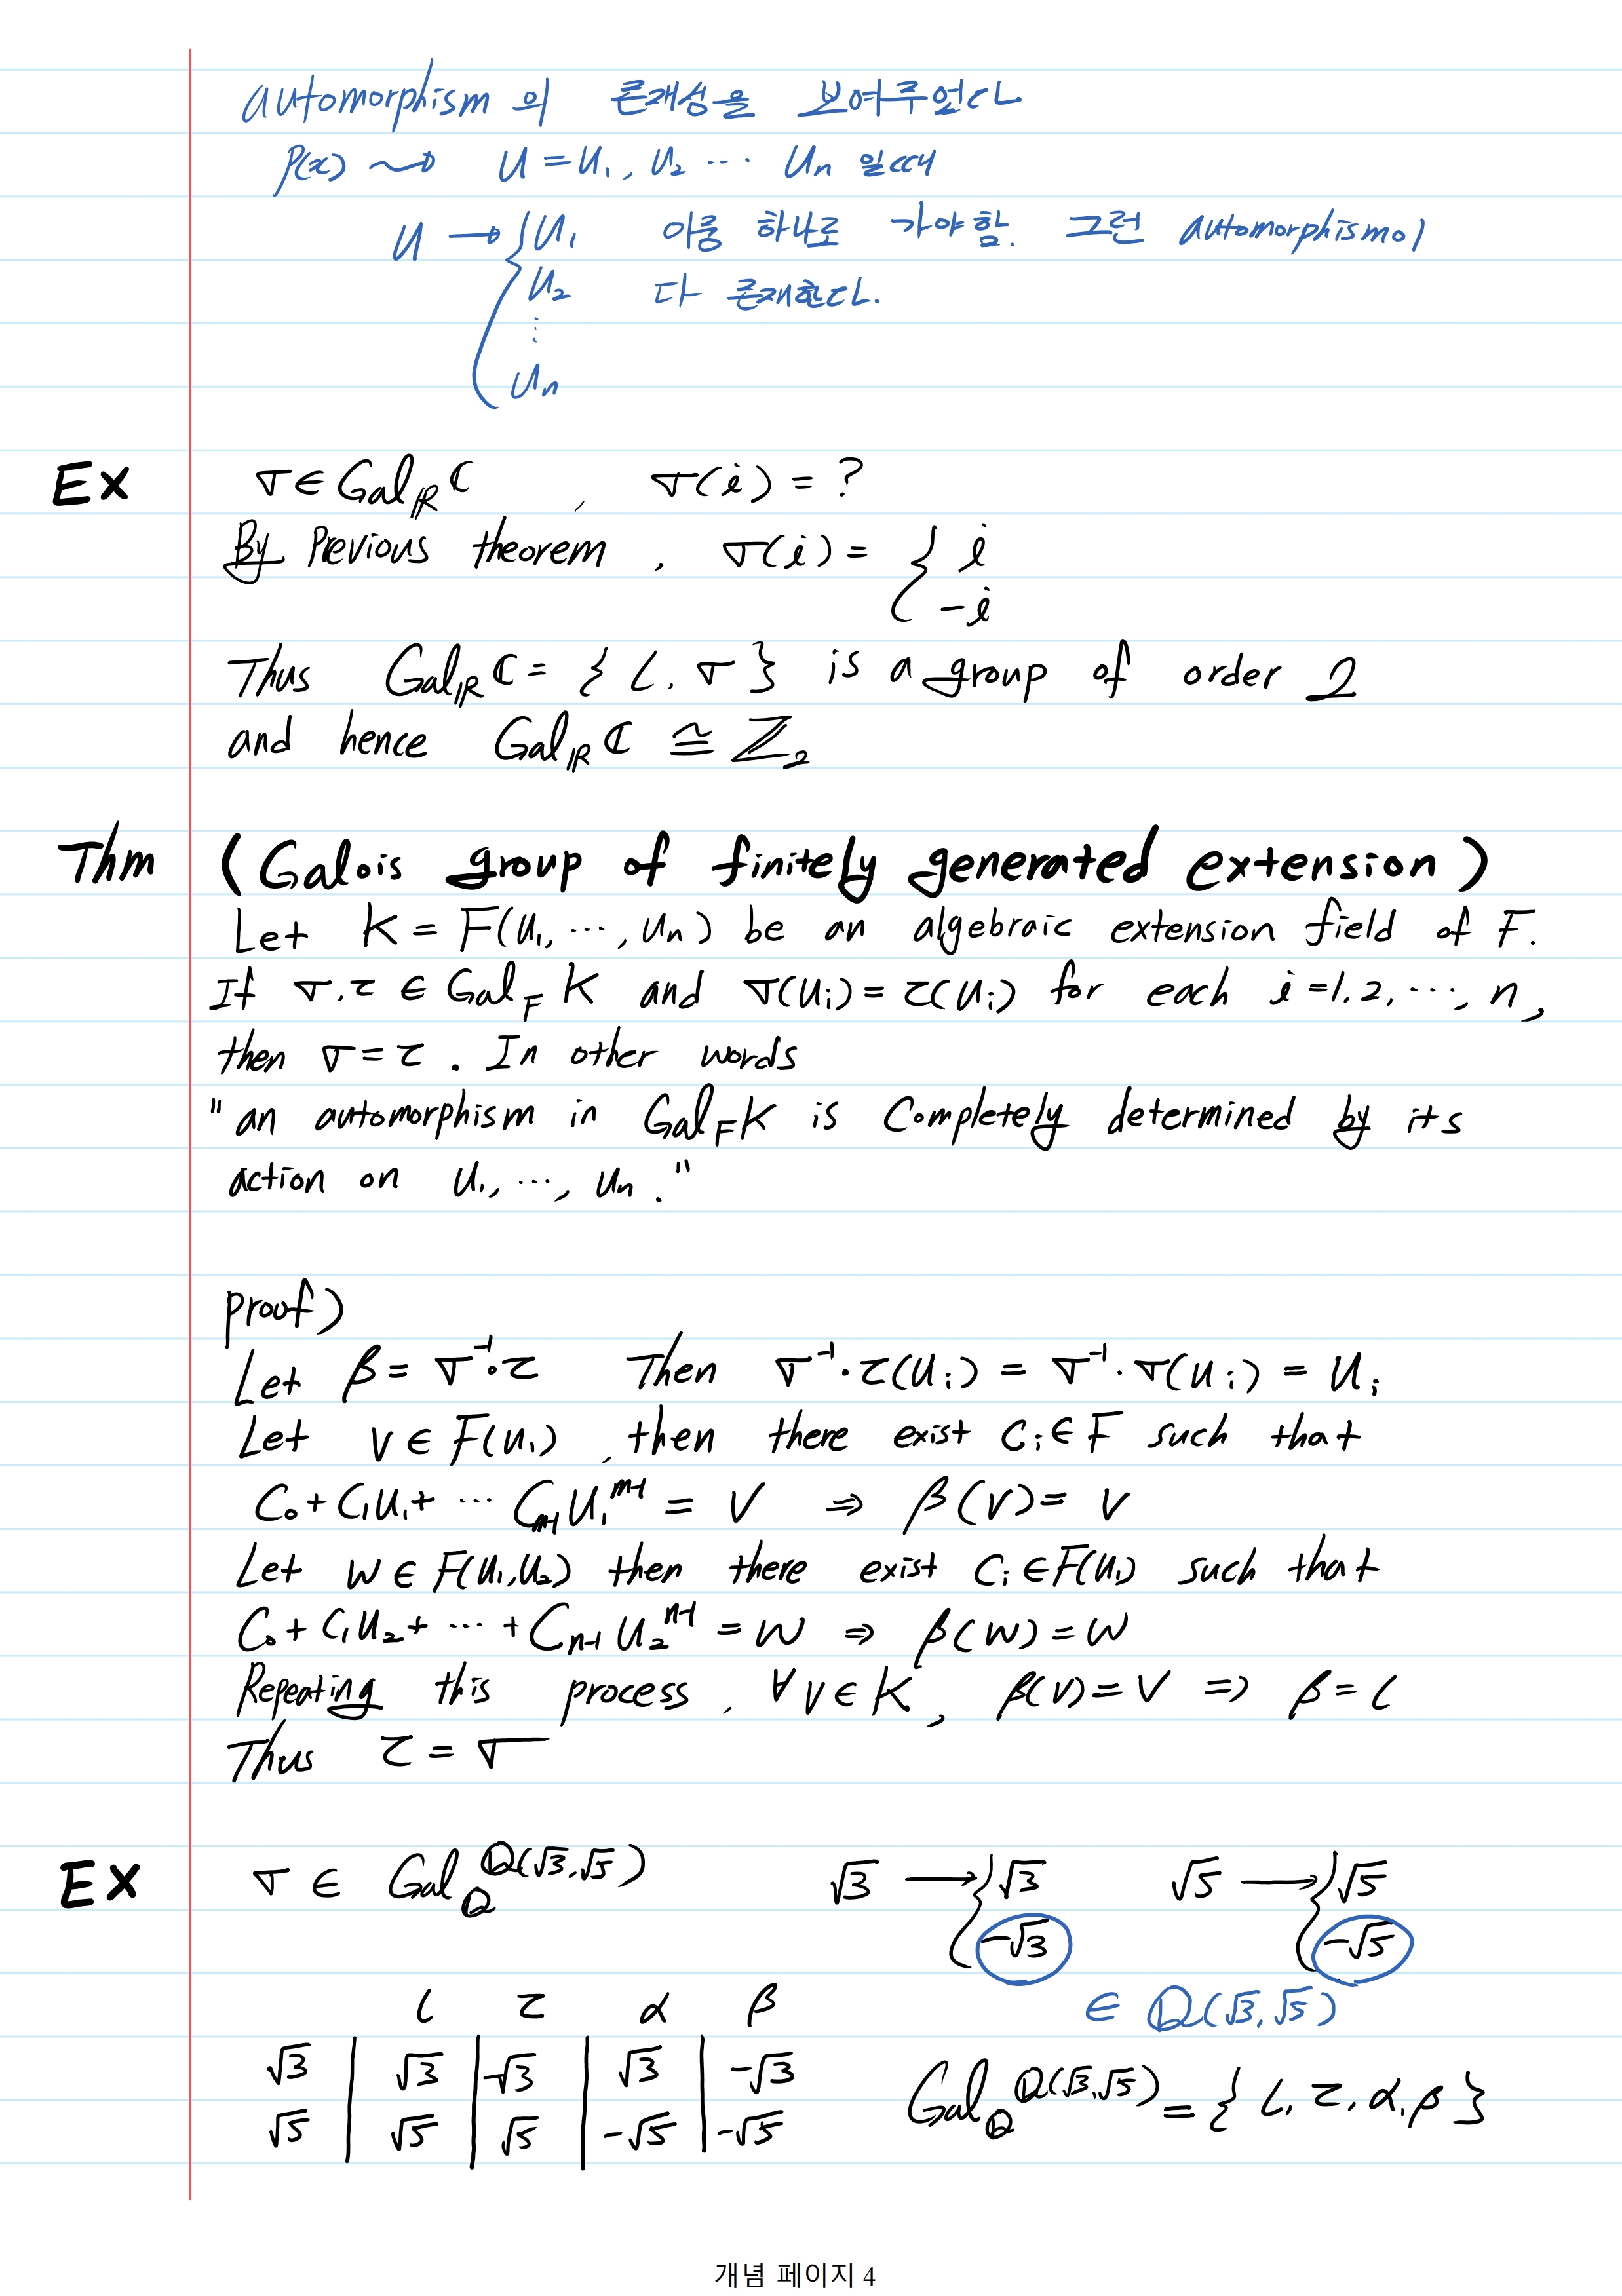 automorphism 의 존재성을 보여주었다
P(x) ⇝ u = u₁, u₂ ⋯ uₙ 일때
u → { u₁ 아무 하나로 가야함. 그런 automorphism이
u₂ 다 존재한다.
⋮
uₙ
Ex σ ∈ Gal_ℝ ℂ , σ(i) = ?
By Previous theorem , σ(i) = { i
-i
Thus Gal_ℝ ℂ = { ι, σ } is a group of order 2
and hence Gal_ℝ ℂ ≅ ℤ₂
Thm (Galois group of finitely generated extension)
Let K = F(u₁, ⋯, uₙ) be an algebraic extension field of F.
If σ, τ ∈ Gal_F K and σ(uᵢ) = τ(uᵢ) for each i = 1, 2, ⋯, n,
then σ = τ . In other words
" an automorphism in Gal_F K is completely determined by its
action on u₁, ⋯, uₙ . "
proof)
Let β = σ⁻¹∘τ Then σ⁻¹∘τ(uᵢ) = σ⁻¹∘σ(uᵢ) = uᵢ
Let v ∈ F(u₁) , then there exist cᵢ ∈ F such that
c₀ + c₁u₁ + ⋯ cₘ₋₁u₁ᵐ⁻¹ = v ⇒ β(v) = v
Let w ∈ F(u₁, u₂) then there exist cᵢ ∈ F(u₁) such that
c₀ + c₁u₂ + ⋯ + cₙ₋₁u₂ⁿ⁻¹ = w ⇒ β(w) = w
Repeating this process , ∀ v ∈ K , β(v) = v ⇒ β = ι
Thus τ = σ
Ex σ ∈ Gal_ℚ ℚ(√3, √5) √3 → { √3 √5 → { √5
-√3 -√5
ι τ α β ∈ ℚ(√3, √5)
√3 | √3 | -√3 | √3 | -√3 Gal_ℚ ℚ(√3, √5) = { ι, τ, α, β }
√5 | √5 | √5 | -√5 | -√5
개념 페이지 4